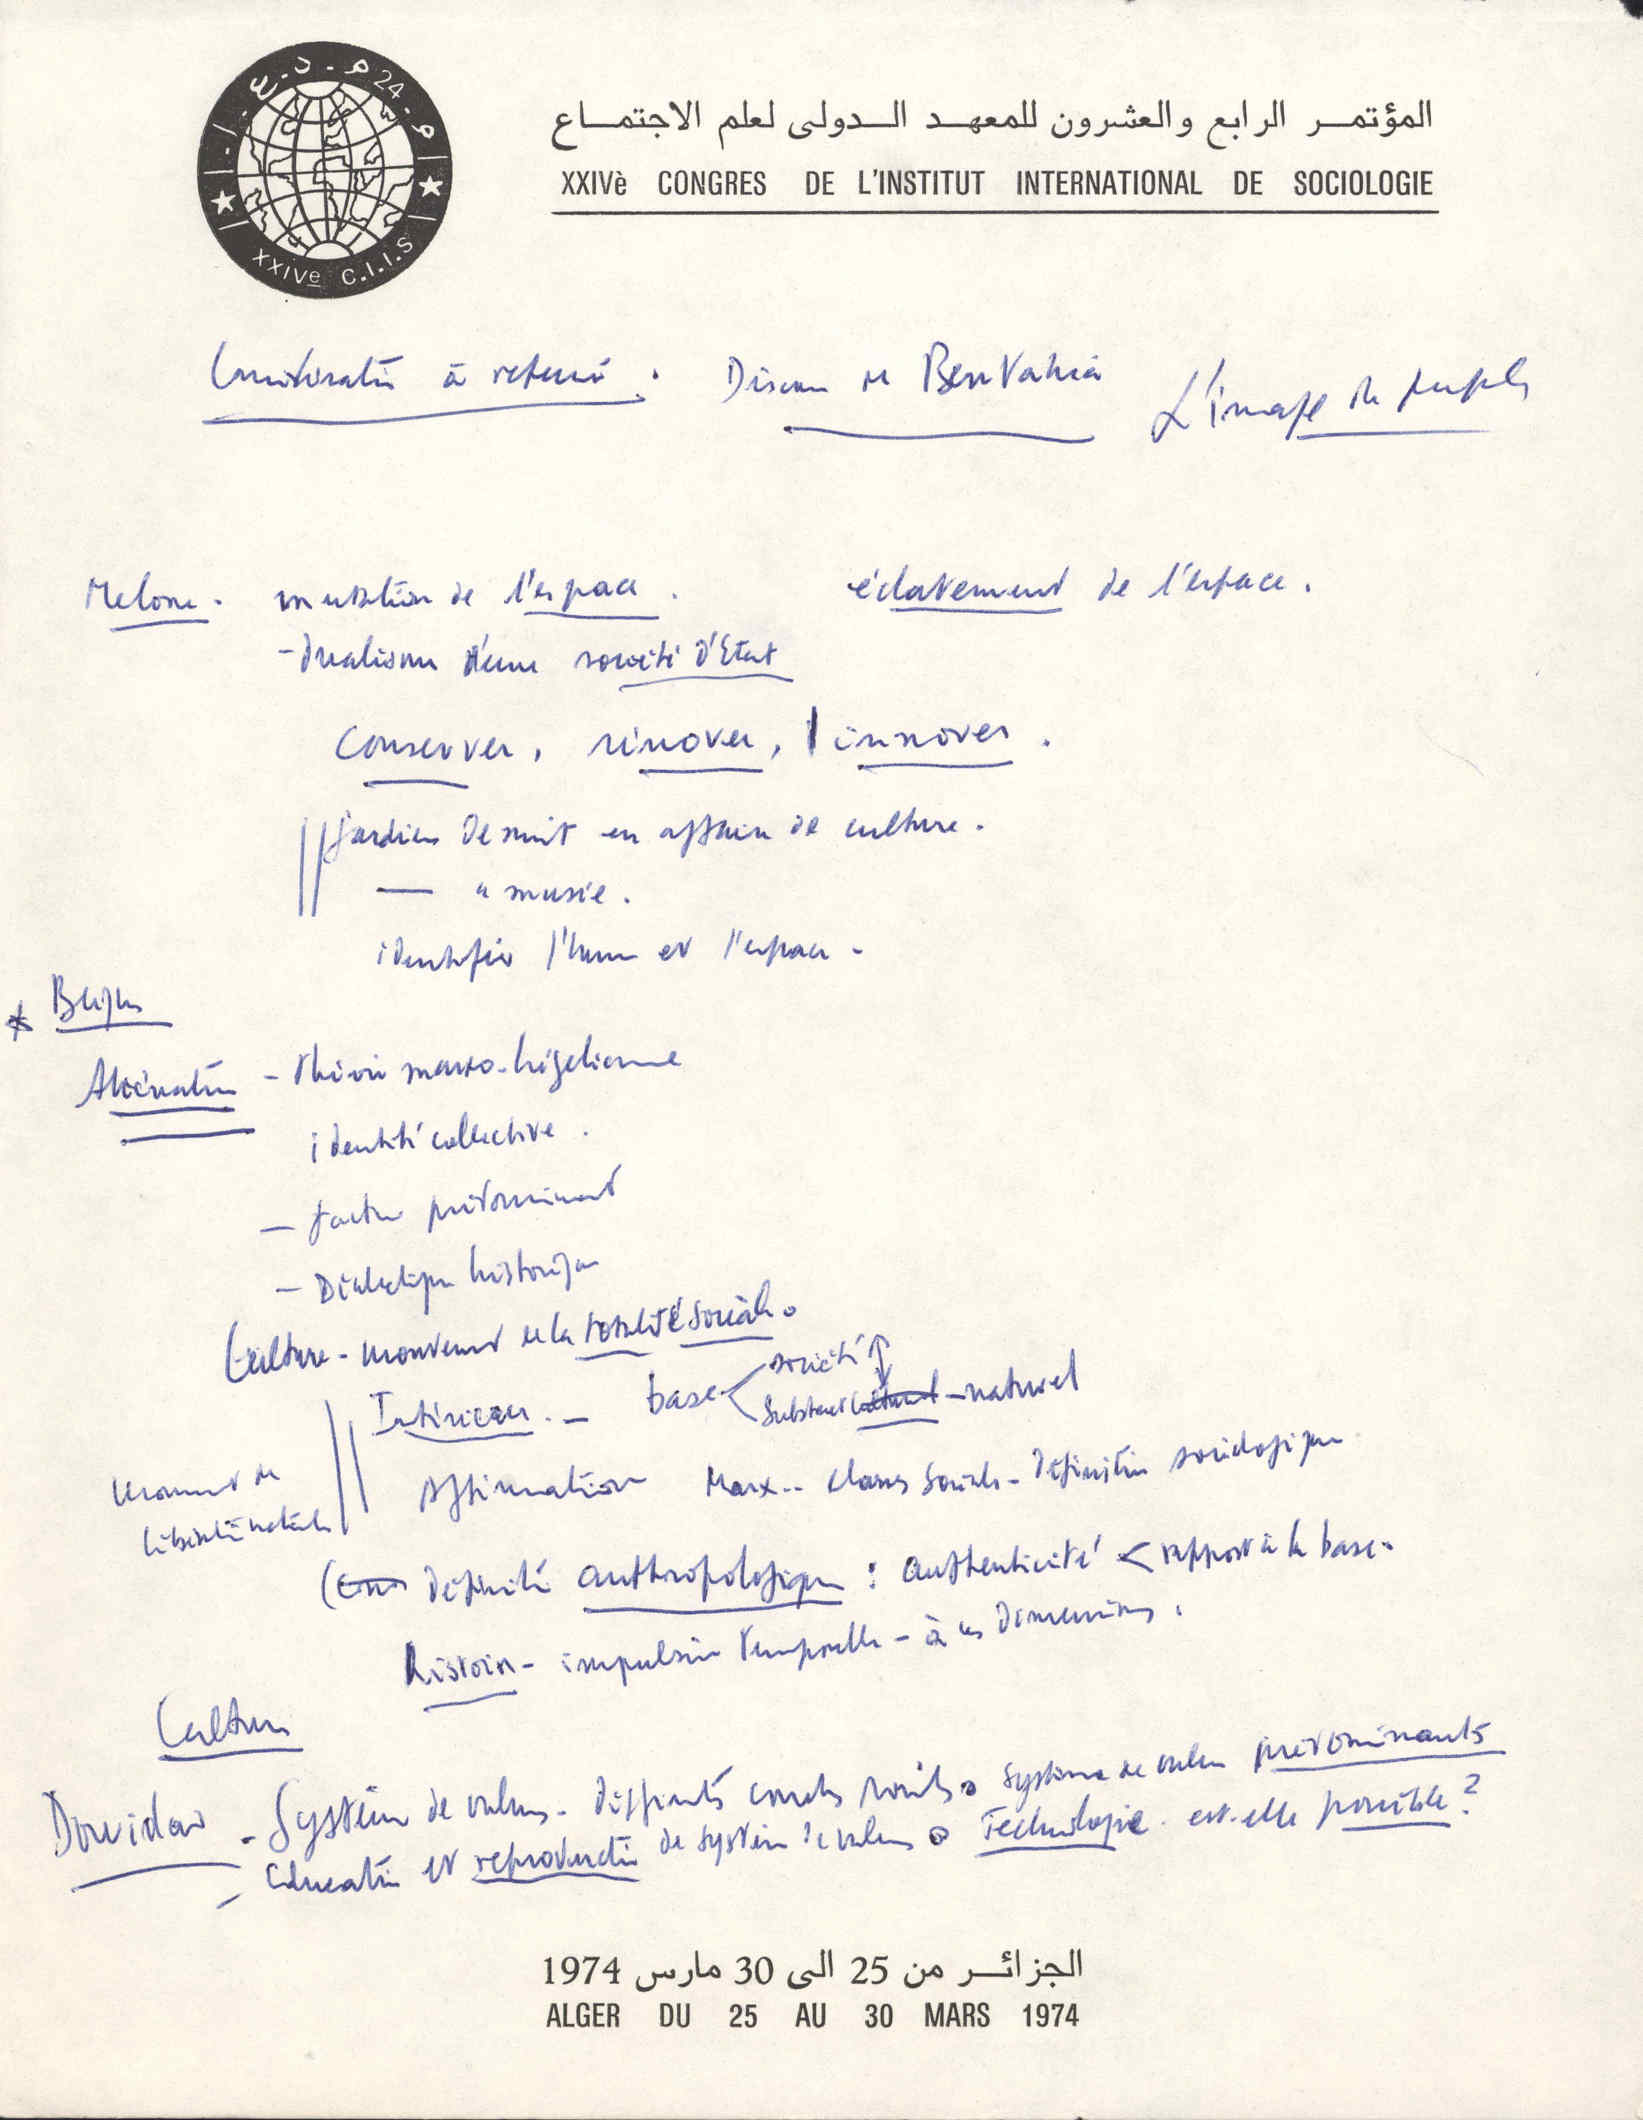 ا.ع.د.م 24.م
XXIVe C.I.I.S
المؤتمر الرابع والعشرون للمعهد الدولى لعلم الاجتماع
XXIVè CONGRES DE L'INSTITUT INTERNATIONAL DE SOCIOLOGIE
à retenir. Discours de BenYahia L'image du peuple
Melone. mutation de l'espace. éclatement de l'espace.
- dualisme d'une société d'Etat
Conserver, rénover, innover.
gardien de nuit en affaire de culture.
— " musée.
identifier l'homme et l'espace.
* Berque
Aliénation - théorie marxo-hégélienne
identité collective.
— facteur prédominant
— Dialectique historique
Culture - mouvement de la totalité sociale.
Intérieur. — base < société
-naturel
Mouvement de
libération nationale
Affirmation Marx.. classes sociales - Définition sociologique
définition anthropologique : authenticité < rapport à la base.
Histoire - impulsion temporelle - à ces dimensions.
Culture
Dowidar - Système de valeurs - différentes couches sociales. système de valeurs prédominants
- Education et reproduction du système de valeurs. Technologie. est-elle possible ?
الجزائر من 25 الى 30 مارس 1974
ALGER DU 25 AU 30 MARS 1974